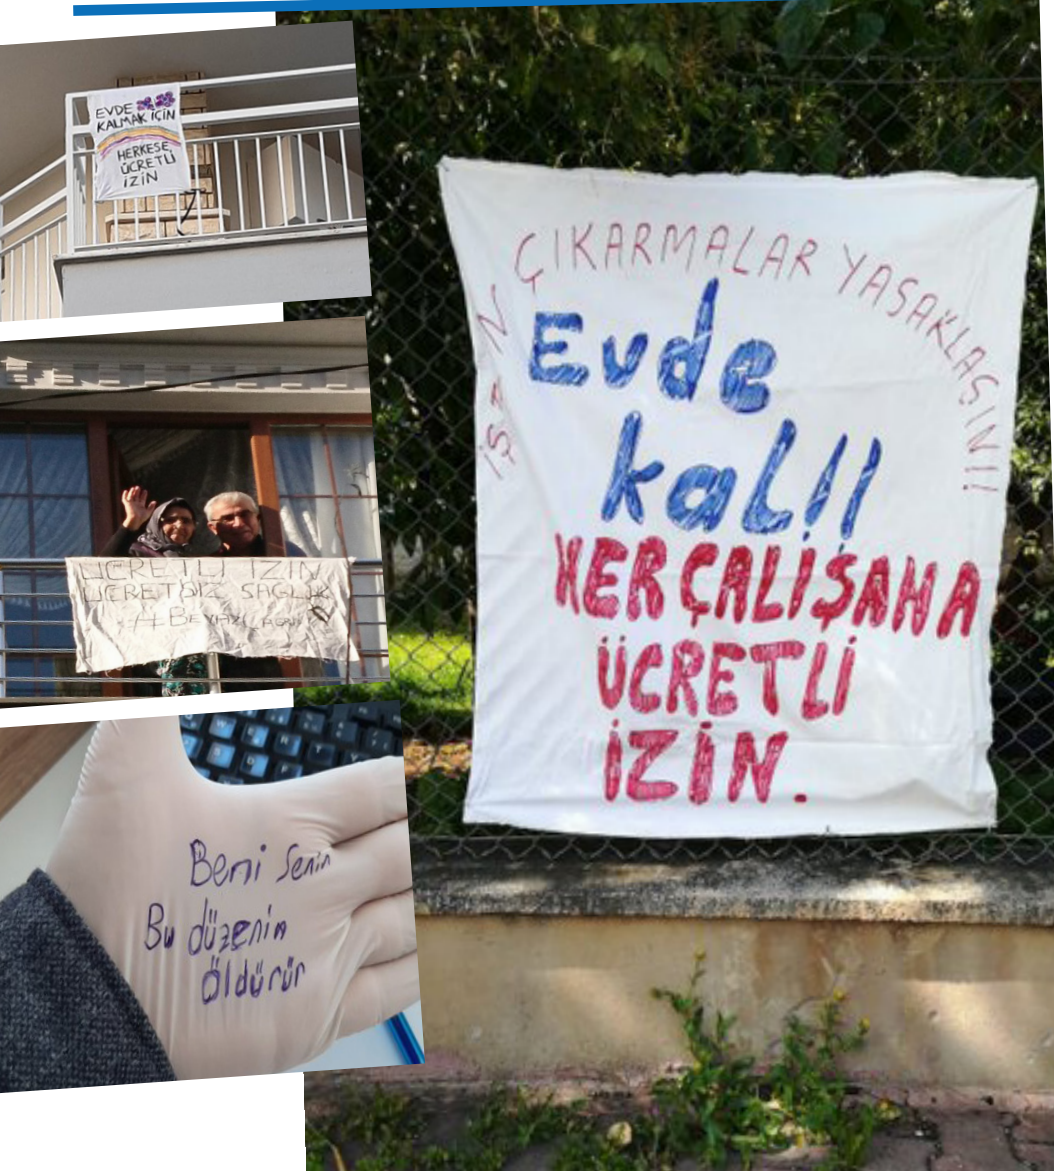 EVDE
KALMAK İÇİN
HERKESE
ÜCRETLİ
İZİN
ÜCRETLİ İZİN
ÜCRETSİZ SAĞLIK
Beni Senin
Bu düzenin
öldürür
İŞTEN ÇIKARMALAR YASAKLASIN!!
Evde
kal!!
HER ÇALIŞANA
ÜCRETLİ
İZİN.